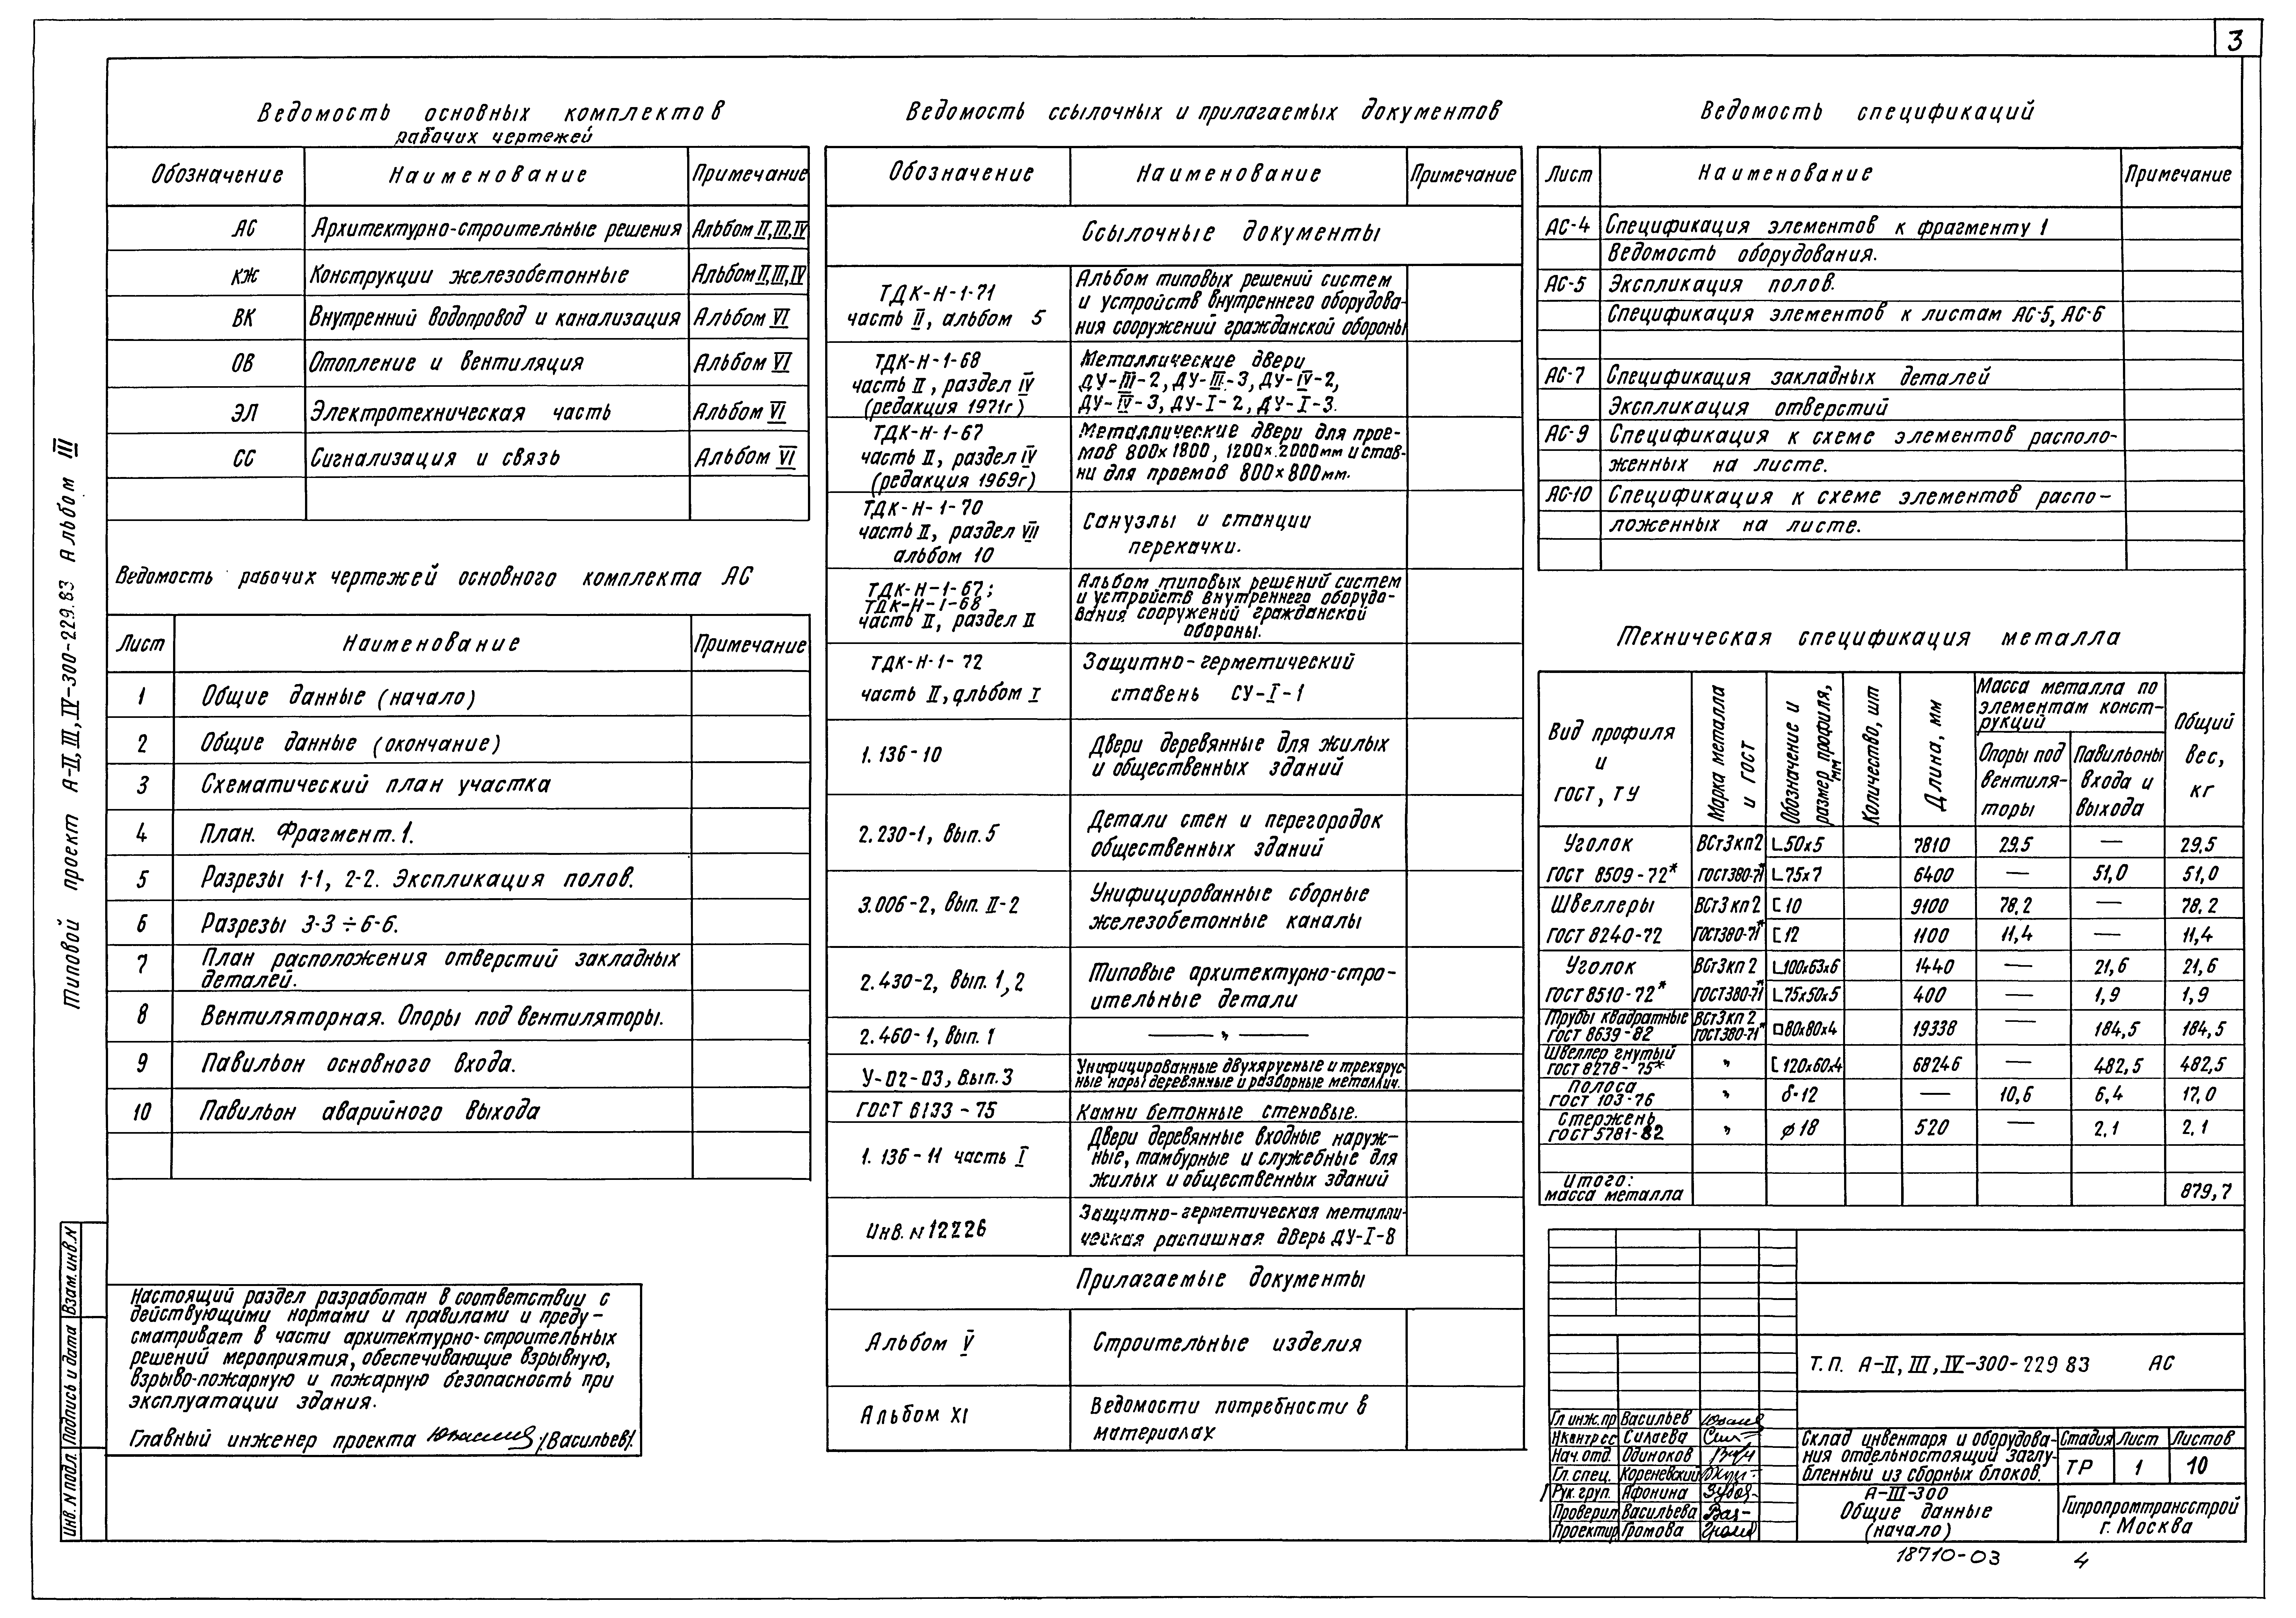 3
Типовой проект А-II, III, IV-300-229.83 Альбом III
Ведомость основных комплектов
рабочих чертежей
Обозначение Наименование Примечание
АС Архитектурно-строительные решения Альбом II, III, IV
КЖ Конструкции железобетонные Альбом II, III, IV
ВК Внутренний водопровод и канализация Альбом VI
ОВ Отопление и вентиляция Альбом VI
ЭЛ Электротехническая часть Альбом VI
СС Сигнализация и связь Альбом VI
Ведомость рабочих чертежей основного комплекта АС
Лист Наименование Примечание
1 Общие данные (начало)
2 Общие данные (окончание)
3 Схематический план участка
4 План. Фрагмент.1.
5 Разрезы 1-1, 2-2. Экспликация полов.
6 Разрезы 3-3÷6-6.
7 План расположения отверстий закладных
деталей.
8 Вентиляторная. Опоры под вентиляторы.
9 Павильон основного входа.
10 Павильон аварийного выхода
Настоящий раздел разработан в соответствии с
действующими нормами и правилами и преду-
сматривает в части архитектурно-строительных
решений мероприятия, обеспечивающие взрывную,
взрыво-пожарную и пожарную безопасность при
эксплуатации здания.
Главный инженер проекта /Васильев/.
Взам.инв.N
Подпись и дата
Инв.N подл.
Ведомость ссылочных и прилагаемых документов
Обозначение Наименование Примечание
Ссылочные документы
ТДК-Н-1-71
часть II, альбом 5
Альбом типовых решений систем
и устройств внутреннего оборудова-
ния сооружений гражданской обороны
ТДК-Н-1-68
часть II, раздел IV
(редакция 1971г)
Металлические двери
ДУ-III-2, ДУ-III-3, ДУ-IV-2,
ДУ-IV-3, ДУ-I-2, ДУ-I-3.
ТДК-Н-1-67
часть II, раздел IV
(редакция 1969г)
Металлические двери для прое-
мов 800х1800, 1200х2000мм и став-
ни для проемов 800×800мм.
ТДК-Н-1-70
часть II, раздел VII
альбом 10
Санузлы и станции
перекачки.
ТДК-Н-1-67;
ТДК-Н-1-68
часть II, раздел II
Альбом типовых решений систем
и устройств внутреннего оборудо-
вания сооружений гражданской
обороны.
ТДК-Н-1-72
часть II, альбом I
Защитно-герметический
ставень СУ-I-1
1.136-10
Двери деревянные для жилых
и общественных зданий
2.230-1, вып.5
Детали стен и перегородок
общественных зданий
3.006-2, вып. II-2
Унифицированные сборные
железобетонные каналы
2.430-2, вып.1,2
Типовые архитектурно-стро-
ительные детали
2.460-1, вып.1 — „ —
У-02-03, вып.3
Унифицированные двухярусные и трехярус-
ные нары деревянные и разборные металлич.
ГОСТ 6133-75 Камни бетонные стеновые.
1.136-11 часть I
Двери деревянные входные наруж-
ные, тамбурные и служебные для
жилых и общественных зданий
Инв. N 12226
Защитно-герметическая металли-
ческая распашная дверь ДУ-I-8
Прилагаемые документы
Альбом V Строительные изделия
Альбом XI Ведомости потребности в
материалах
Ведомость спецификаций
Лист Наименование Примечание
АС-4 Спецификация элементов к фрагменту 1
Ведомость оборудования.
АС-5 Экспликация полов.
Спецификация элементов к листам АС-5, АС-6
АС-7 Спецификация закладных деталей
Экспликация отверстий
АС-9 Спецификация к схеме элементов располо-
женных на листе.
АС-10 Спецификация к схеме элементов распо-
ложенных на листе.
Техническая спецификация металла
Вид профиля
и
ГОСТ, ТУ
Марка металла
и ГОСТ
Обозначение и
размер профиля,
мм
Количество, шт
Длина, мм
Масса металла по
элементам конст-
рукций
Опоры под
вентиля-
торы
Павильоны
входа и
выхода
Общий
вес,
кг
Уголок ВСт3кп2 ∟50х5 7810 29.5 — 29,5
ГОСТ 8509-72* ГОСТ380-71* ∟75х7 6400 — 51,0 51,0
Швеллеры ВСт3кп2 [ 10 9100 78,2 — 78,2
ГОСТ 8240-72 ГОСТ380-71* [ 12 1100 11,4 — 11,4
Уголок ВСт3кп2 ∟100х63х6 1440 — 21,6 21,6
ГОСТ 8510-72* ГОСТ380-71* ∟75х50х5 400 — 1,9 1,9
Трубы квадратные ВСт3кп2
ГОСТ 8639-82 ГОСТ380-71* □80х80х4 19338 — 184,5 184,5
Швеллер гнутый
ГОСТ 8278-75* „ [ 120х60х4 68246 — 482,5 482,5
Полоса
ГОСТ 103-76 „ δ-12 — 10,6 6,4 17,0
Стержень
ГОСТ 5781-82 „ ⌀18 520 — 2,1 2,1
Итого:
масса металла 879,7
Т.П. А-II, III, IV-300-229 83 АС
Гл инж.пр Васильев
Н контр сс Силаева
Нач. отд. Одиноков
Гл. спец. Кореневский
Рук. груп. Афонина
Проверил Васильева
Проектир Громова
Склад инвентаря и оборудова-
ния отдельностоящий заглу-
бленный из сборных блоков.
Стадия Лист Листов
ТР 1 10
А-III-300
Общие данные
(начало)
Гипропромтрансстрой
г. Москва
18710-03 4